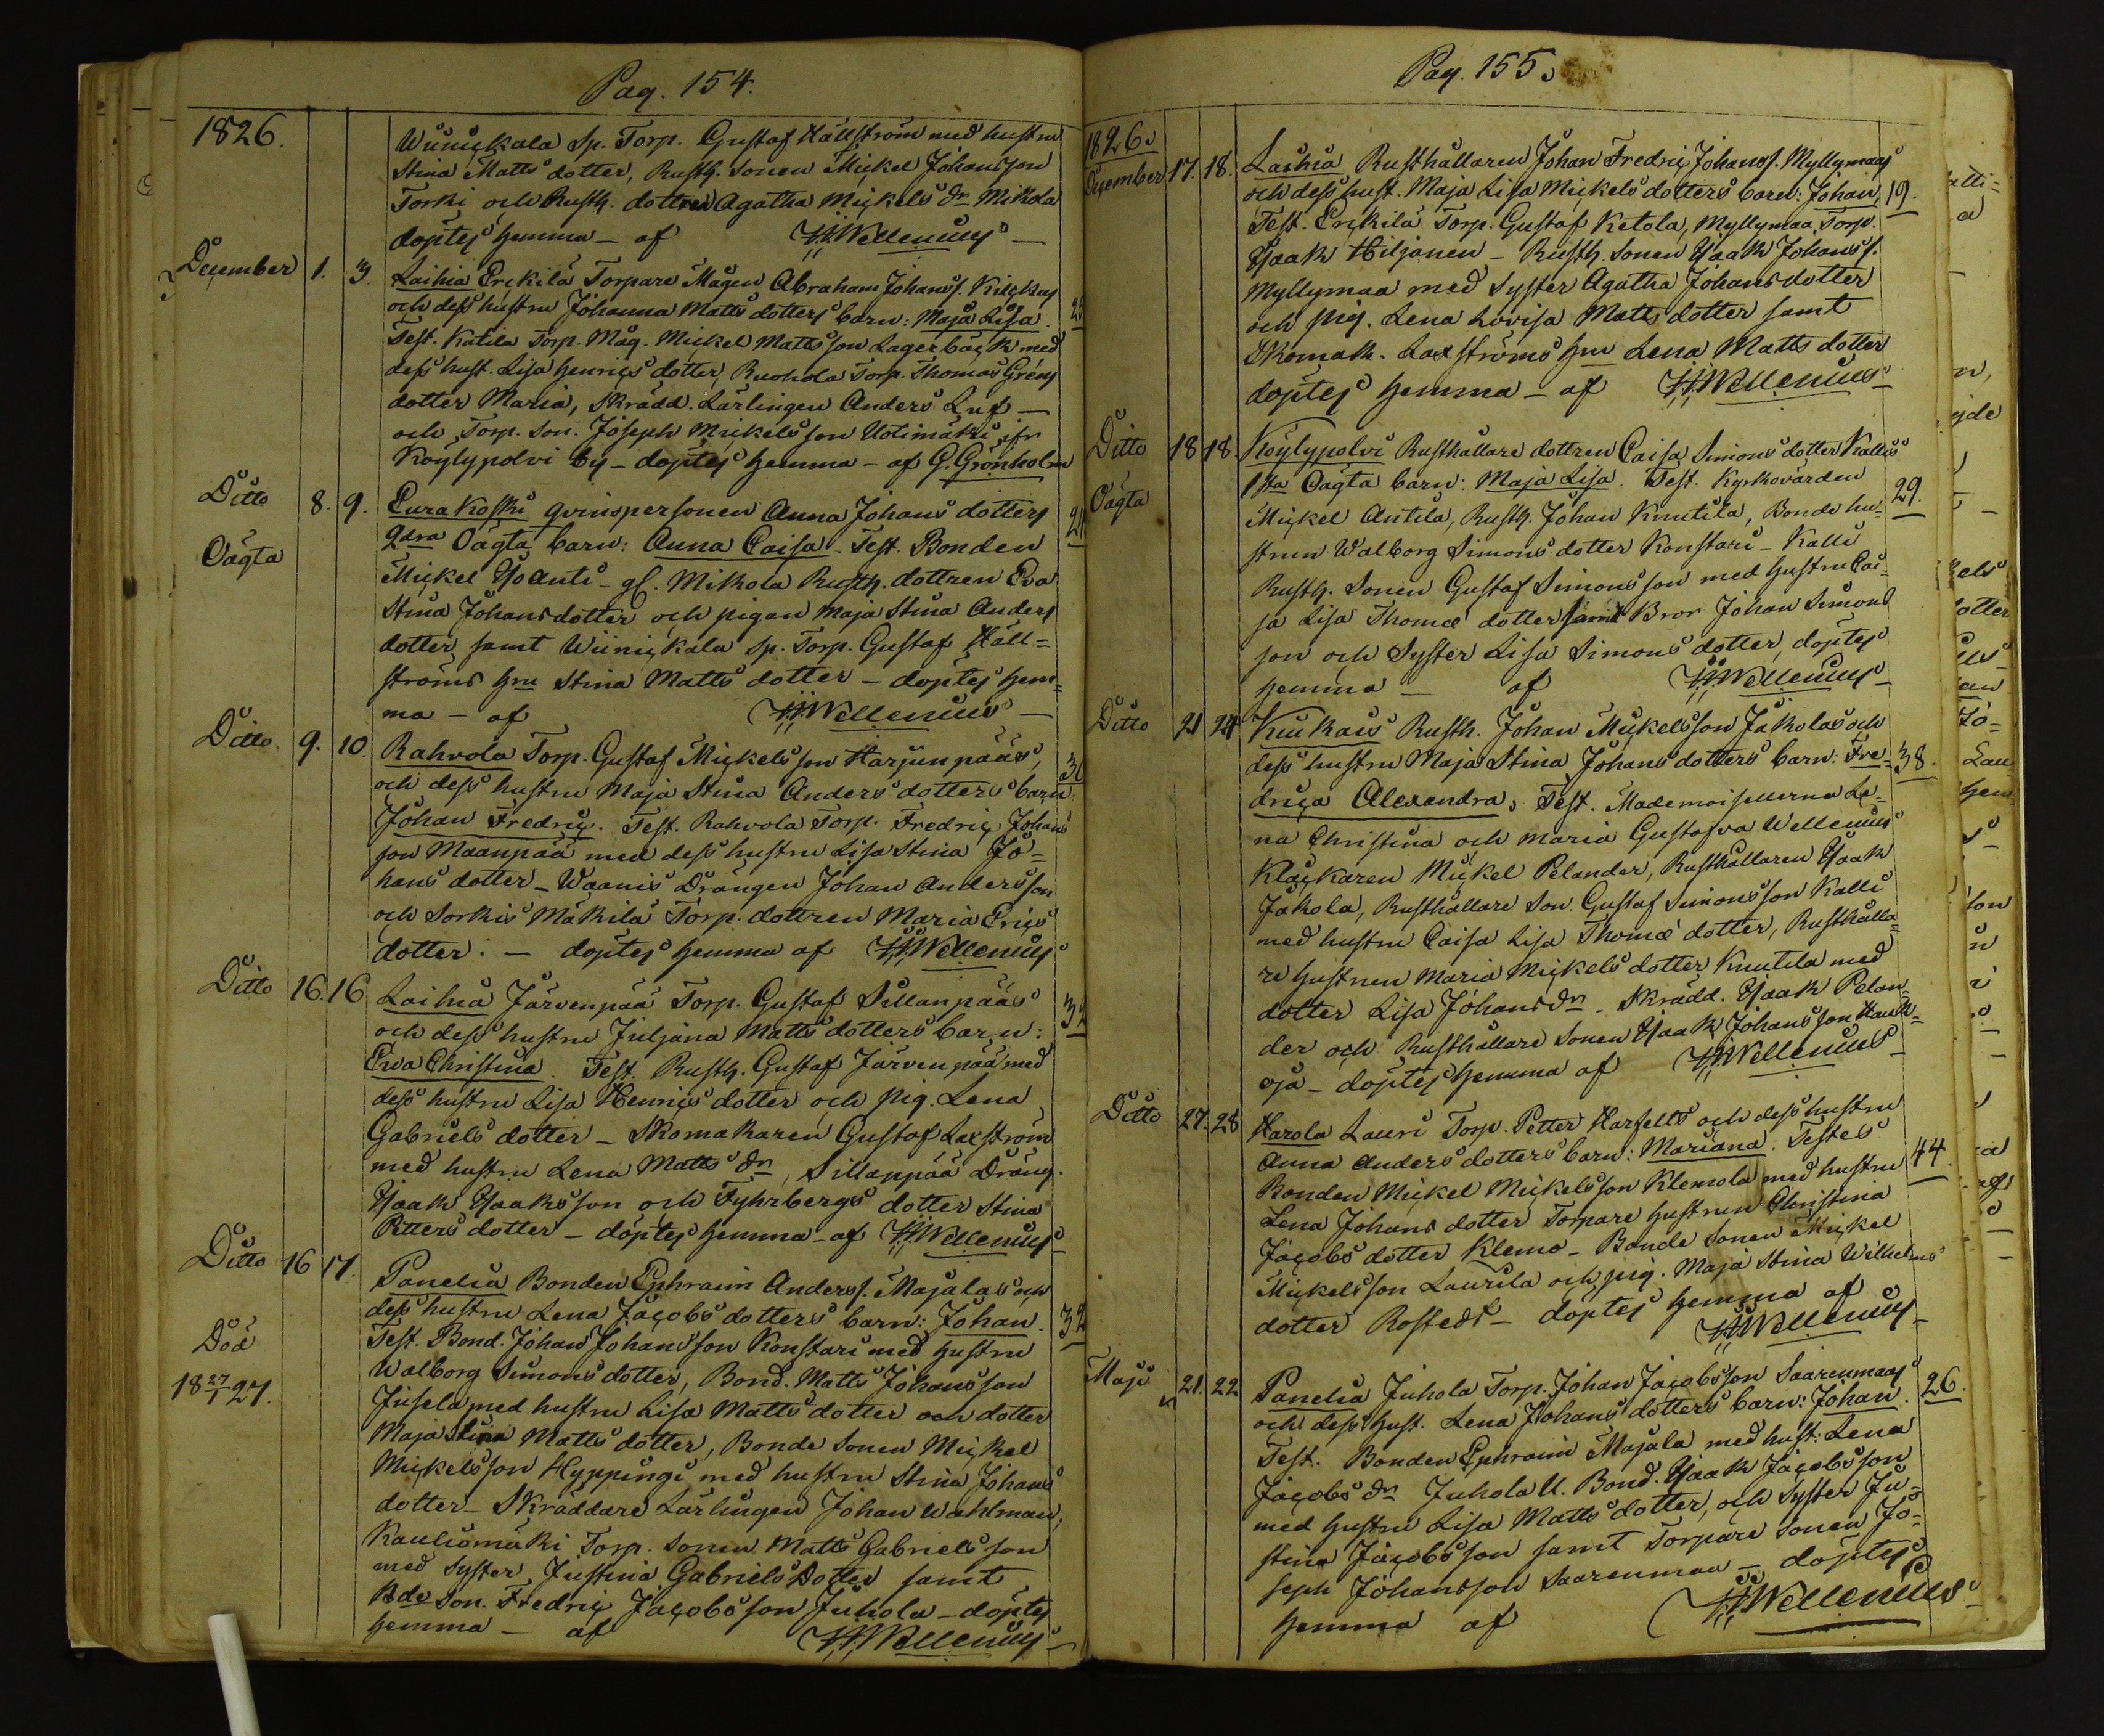 Pag. 154.
1826.
Wiinickala Sp. Torp. Gustaf Hällström med hustru
Stina Matts dotter, Rusth. Sonen Mickel Johansson
Torki och Rusth. dottren Agatha Mickels dr Mikola
döptes hemma – af HHWellenius –
December 1. 3. Laihia Erckilä Torpare Mågen Abraham Johanss. Kilckus
och dess hustru Johanna Matts dotters barn: Maja Lisa.
Test. Katila Torp. Måg. Mickel Mattsson Lagerbäck med
dess hust. Lisa Henrics dotter, Ruohola Torp. Thomas Gröns
dotter Maria, Skrädd. Lärlingen Anders Luf –
och Torp. Son. Joseph Mickelsson Uotimäki ifr
Köylypolvi by – döptes hemma – af G. Grönholm
Ditto 8. 9. Eura Koski qvinspersonen Anna Johans dotters
Oägta 2dra Oägta barn: Anna Caisa. Test. Bonden
Mickel Yoanti – gl. Mikola Rusth. dottren Eva
Stina Johansdotter och pigan Maja Stina Anders
dotter samt Wiinickala Sp. Torp. Gustaf Häll=
ströms hru Stina Matts dotter – döptes hem=
ma – af HHWellenius –
Ditto 9. 10. Rahvola Torp. Gustaf Mickelsson Harjunpääs,
och dess hustru Maja Stina Anders dotters barn
Johan Fredric. Test. Rahvola Torp. Fredric Johans
son Maanpää med dess hustru Lisa Stina Jo=
hans dotter – Waanis Drängen Johan Andersson
och Sorkis Mäkilä Torp. dottren Maria Erics
dotter. – döptes hemma af HHWellenius
Ditto 16. 16 Laihia Järvenpää Torp. Gustaf Sillanpääs
och dess hustru Juljana Matts dotters barn:
Ewa Christina. Test. Rusth. Gustaf Järvenpää med
dess hustru Lisa Henrics dotter och pig. Lena
Gabriels dotter – Skomakaren Gustaf Laxström
med hustru Lena Matts dr, Sillanpää Dräng.
Ysaak Ysaksson och Fyhrbergs dotter Stina
Petters dotter – döptes hemma – af HHWellenius
Ditto 16 17. Panelia Bonden Ephraim Anderss. Majalas och
dess hustru Lena Jacobs dotters barn: Johan. 32
Död Test. Bond. Johan Johansson Konstari med hustru
Walborg Simons dotter, Bond. Matts Johansson
18 27/1 27.
Jusela med hustru Lisa Matts dotter och dotter
Maja Stina Matts dotter, Bonde Sonen Mickel
Mickelsson Hyppingi med hustru Stina Johans
dotter – Skräddare Lärlingen Johan Wahlman,
Kauliomäki Torp. Sonen Matts Gabrielsson
med Syster Justina Gabriels Dotter samt
Bde Son. Fredric Jacobsson Juhola – döptes
hemma – af HHWellenius –
Pag. 155.
1826.
December 17. 18. Laihia Rusthållaren Johan Fredric Johanss. Myllymaas
och dess hust. Maja Lisa Mickels dotters barn: Johan, 19.
Test. Erckilä Torp. Gustaf Ketola, Myllymaa Torp.
Ysaak Hiljanen – Rusth. Sonen Ysaak Johanss.
Myllymaa med Syster Agatha Johansdotter
och pig. Lena Lovisa Matts dotter samt
Skomak. Laxströms hru Lena Matts dotter
döptes hemma – af HHWellenius –
Ditto 18 18. Köylypolvi Rusthållare dottren Caisa Simons dotter Kallis
Oägta 1sta Oägta barn: Maja Lisa. Test. Kyrkovärden
Mickel Antila, Rusth. Johan Knutila, Bonde hu= 29.
strun Walborg Simons dotter Konstari – Kalli
Rusth. Sonen Gustaf Simonsson med hustru Cai=
sa Lisa Thomæ dotter samt Bror Johan Simons
son och Syster Lisa Simons dotter, döptes
hemma – af HHWellenius –
Ditto 21 24 Kiukais Rusth. Johan Mickelsson Jakolas och
dess hustru Maja Stina Johans dotters barn: Fre= 38.
drica Alexandra. Test. Mademoisellerna Le=
na Christina och Maria Gustafva Wellenius
Klåckaren Mickel Pelander, Rusthållaren Ysaak
Jakola, Rusthållare Son. Gustaf Simonsson Kalli
med hustru Caisa Lisa Thomæ dotter, Rusthålla=
re hustrun Maria Mickels dotter Knutila med
dotter Lisa Johansdr – Skrädd. Ysaak Pelan=
der och Rusthållare Sonen Ysaak Johansson Hauk=
oja – döptes hemma af HHWellenius –
Ditto 27. 28 Harola Lauri Torp. Petter Harfelts och dess hustru
Anna Anders dotters barn: Mariana. Testes
Bonden Mickel Mickelsson Klemola med hustru 44
Lena Johans dotter Torpare hustrun Christina
Jacobs dotter Klemo – Bonde Sonen Mickel
Mickelsson Laurila och pig. Maja Stina Wilhelms
dotter Rostedt – döptes hemma af
HHWellenius –
Maji 21. 22 Panelia Juhola Torp. Johan Jacobsson Saarenmaas
och dess hust. Lena Johans dotters barn: Johan. 26.
Test. Bonden Ephraim Majala med hust: Lena
Jacobs dr Juhola U. Bond. Ysaak Jacobsson
med hustru Lisa Matts dotter, och Syster Ju=
stina Jacobsson samt Torpare Sonen Jo=
seph Johansson Saarenmaa – döptes
hemma af HHWellenius –